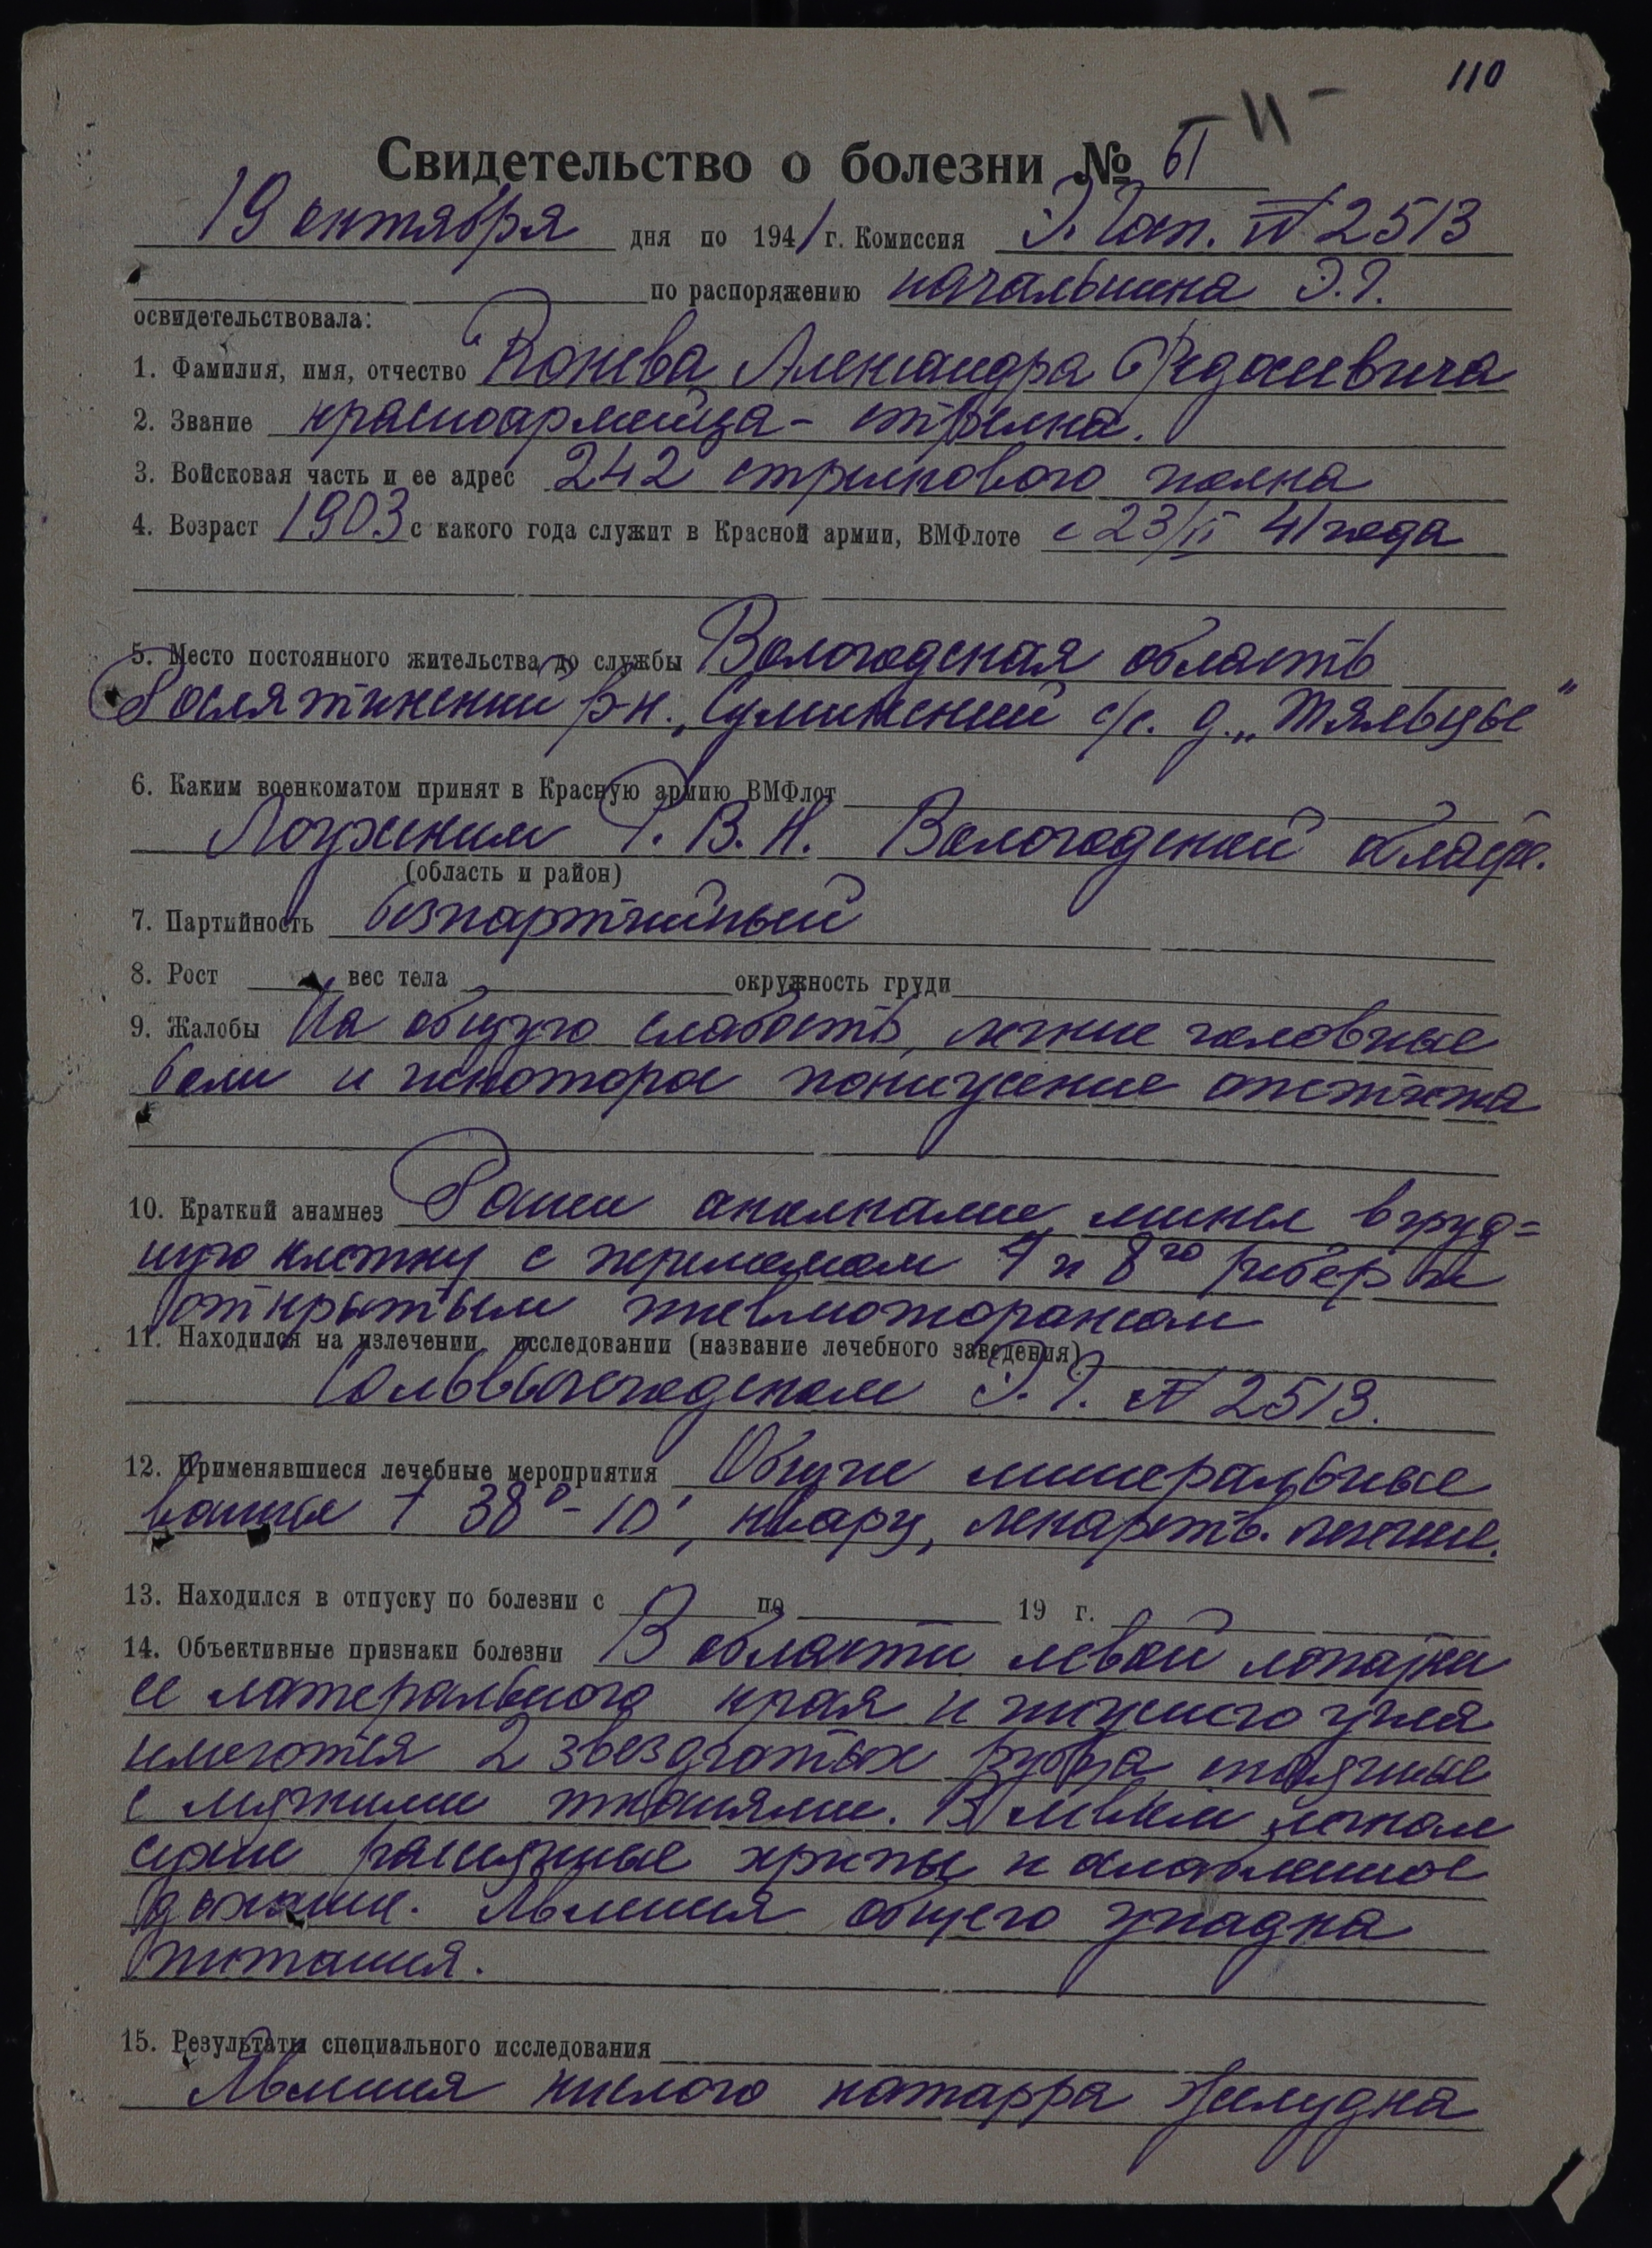 110
Свидетельство о болезни № 61
19 октября дня по 1941 г. Комиссия Э. Гоп. № 2513
по распоряжению начальника Э.Г.
освидетельствовала:
1. Фамилия, имя, отчество Конева Александра Федосеевича
2. Звание красноармейца - стрелка.
3. Войсковая часть и ее адрес 242 стрелкового полка
4. Возраст 1903 с какого года служит в Красной армии, ВМФлоте с 23/VI 41 года
5. Место постоянного жительства до службы Вологодская область
Рослятинский р-н., с/с. д. „Тяльцы"
6. Каким военкоматом принят в Красную армию ВМФлот
Р. В. К. Вологодской област.
(область и район)
7. Партийность безпартийный
8. Рост вес тела окружность груди
9. Жалобы На общую слабость, легкие головные
боли и некоторое понижение аппетита
10. Краткий анамнез Ранен осколками мины в груд=
ную клетку с переломом 7 и 8го ребер и
открытым пневмотораксом
11. Находился на излечении, исследовании (название лечебного заведения)
Сольвычегодском Э.Г. № 2513.
12. Применявшиеся лечебные мероприятия Общие минеральные
ванны t 38° - 10', кварц, лекарств. лечение.
13. Находился в отпуску по болезни с по 19 г.
14. Объективные признаки болезни В области левой лопатки
ее латерального края и нижнего угла
имеются 2 звездчатых рубца спаянные
с мягкими тканями. В левом легком
сухие рассеянные хрипы и ослабленное
дыхание. Явления общего упадка
питания.
15. Результаты специального исследования
Явления кислого катарра желудка